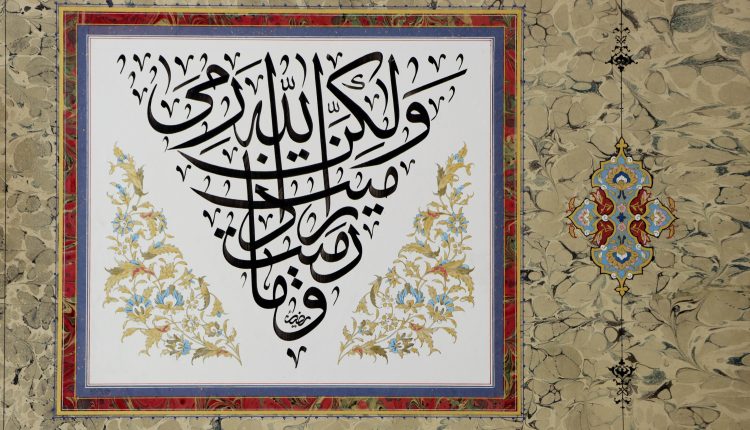 وما
رميت
اذ رميت
وَلكِنَّ اللهَ رَمى